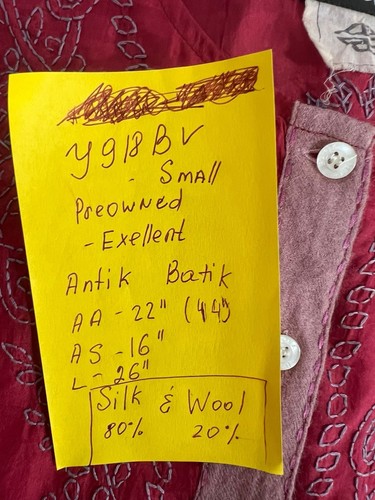 Y918BV
- Small
Preowned
- Exellent
Antik Batik
AA - 22" (44")
AS - 16"
L - 26"
Silk & Wool
80% 20%